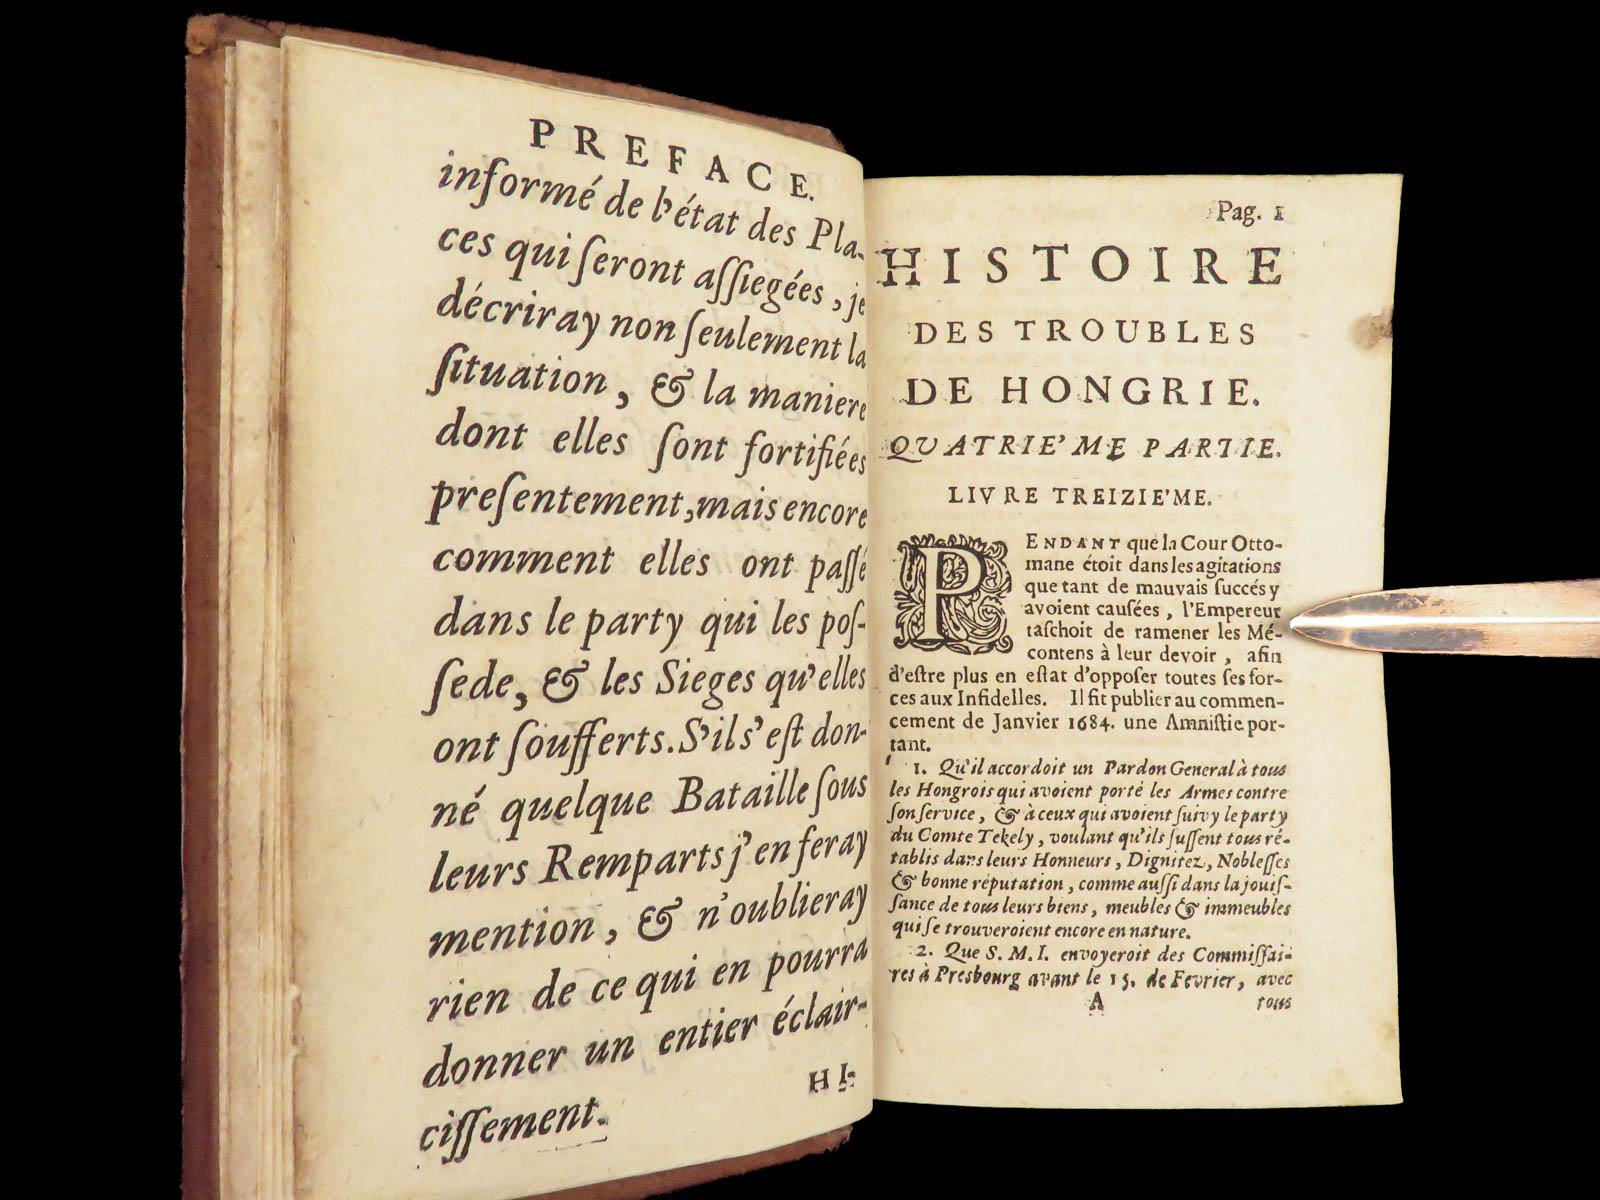 PREFACE.
informé de l'état des Pla-
ces qui ſeront aſſiegées, je
décriray non ſeulement la
ſituation, & la maniere
dont elles ſont fortifiées
preſentement, mais encore
comment elles ont paſſé
dans le party qui les poſ-
ſede, & les Sieges qu'elles
ont ſoufferts. S'il s'eſt don-
né quelque Bataille ſous
leurs Remparts j'en feray
mention, & n'oublieray
rien de ce qui en pourra
donner un entier éclair-
ciſſement.
HI-
Pag. 1
HISTOIRE
DES TROUBLES
DE HONGRIE.
QUATRIE'ME PARTIE.
LIVRE TREIZIE'ME.
PENDANT que la Cour Otto-
mane étoit dans les agitations
que tant de mauvais ſuccés y
avoient cauſées, l'Empereur
taſchoit de ramener les Mé-
contens à leur devoir, afin
d'eſtre plus en eſtat d'oppoſer toutes ſes for-
ces aux Infidelles. Il fit publier au commen-
cement de Janvier 1684. une Amniſtie por-
tant.
1. Qu'il accordoit un Pardon General à tous
les Hongrois qui avoient porté les Armes contre
ſon ſervice, & à ceux qui avoient ſuivy le party
du Comte Tekely, voulant qu'ils fuſſent tous ré-
tablis dans leurs Honneurs, Dignitez, Nobleſſes
& bonne réputation, comme auſſi dans la jouiſ-
ſance de tous leurs biens, meubles & immeubles
qui ſe trouveroient encore en nature.
2. Que S. M. I. envoyeroit des Commiſſai-
res à Presbourg avant le 15. de Fevrier, avec
A
tous